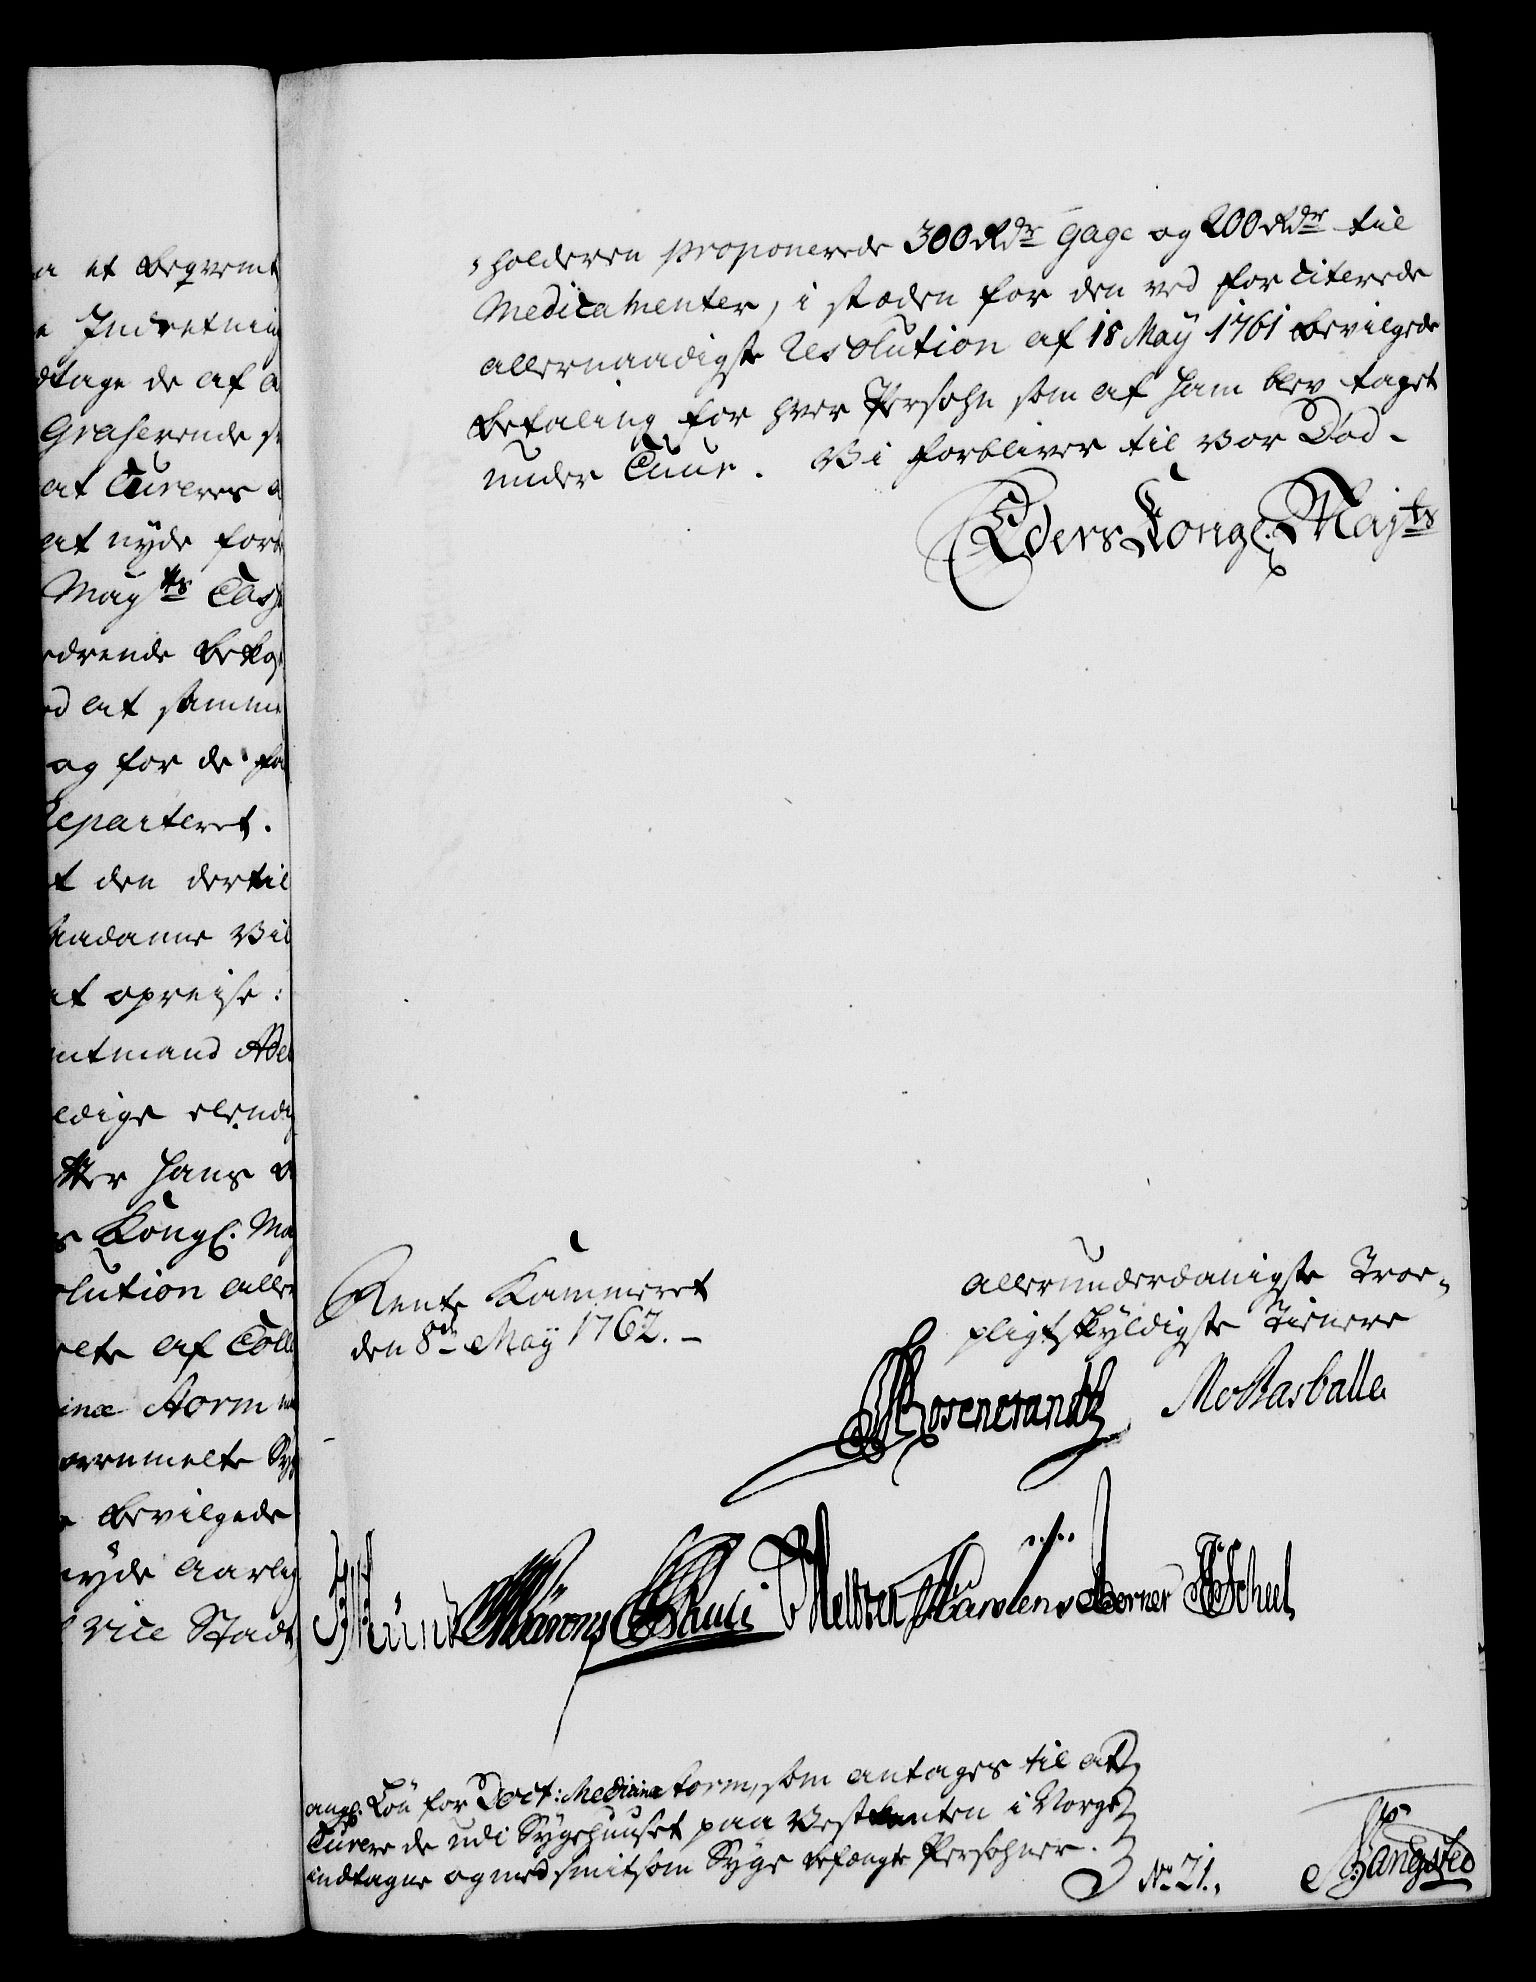 a et beqvemt
e Indretnin
dtage de af a
Grasserende s
at Curerer a
at nyde for
May.ts Cass
edrende bekos
ed at samme
og for de fa
Reparteret.
t den dertil
saadanne Vil
at opreise:
mtmand Adel
ldige elendi
efter hans
s Kongl. May
olution aller
elte af Coll
inæ Storm
ommelte Sy
bevilgede
nyde aarlig
vice Stadt
holderen proponerede 300 Rdr. Gage og 200 Rdr. til
Medicamenter, i stæden for den ved forciterede
allernaadigste Resolution af 18 Maÿ 1761 bevilgede
betaling for hver Persohn som af ham blev taget
under Cuur. Vi forbliver til vor Død.
Eders Kongl. Mayts
Rente Kammeret
den 8de Maÿ 1762.
allerunderdanigste Troe-
pligtskÿldigste Tienere
Rosencrantz MoRasballe
Münk Mörons Skuli Nellsen Karstens Berner Scheel
ang. Løn for Doct: Medicinæ Storm, som antages til at
Curere de udi Sygehuuset paa Vestkanten i Norge
indtagne og med smitsom Syge befængte Persohner.
No 21.
Bangsted